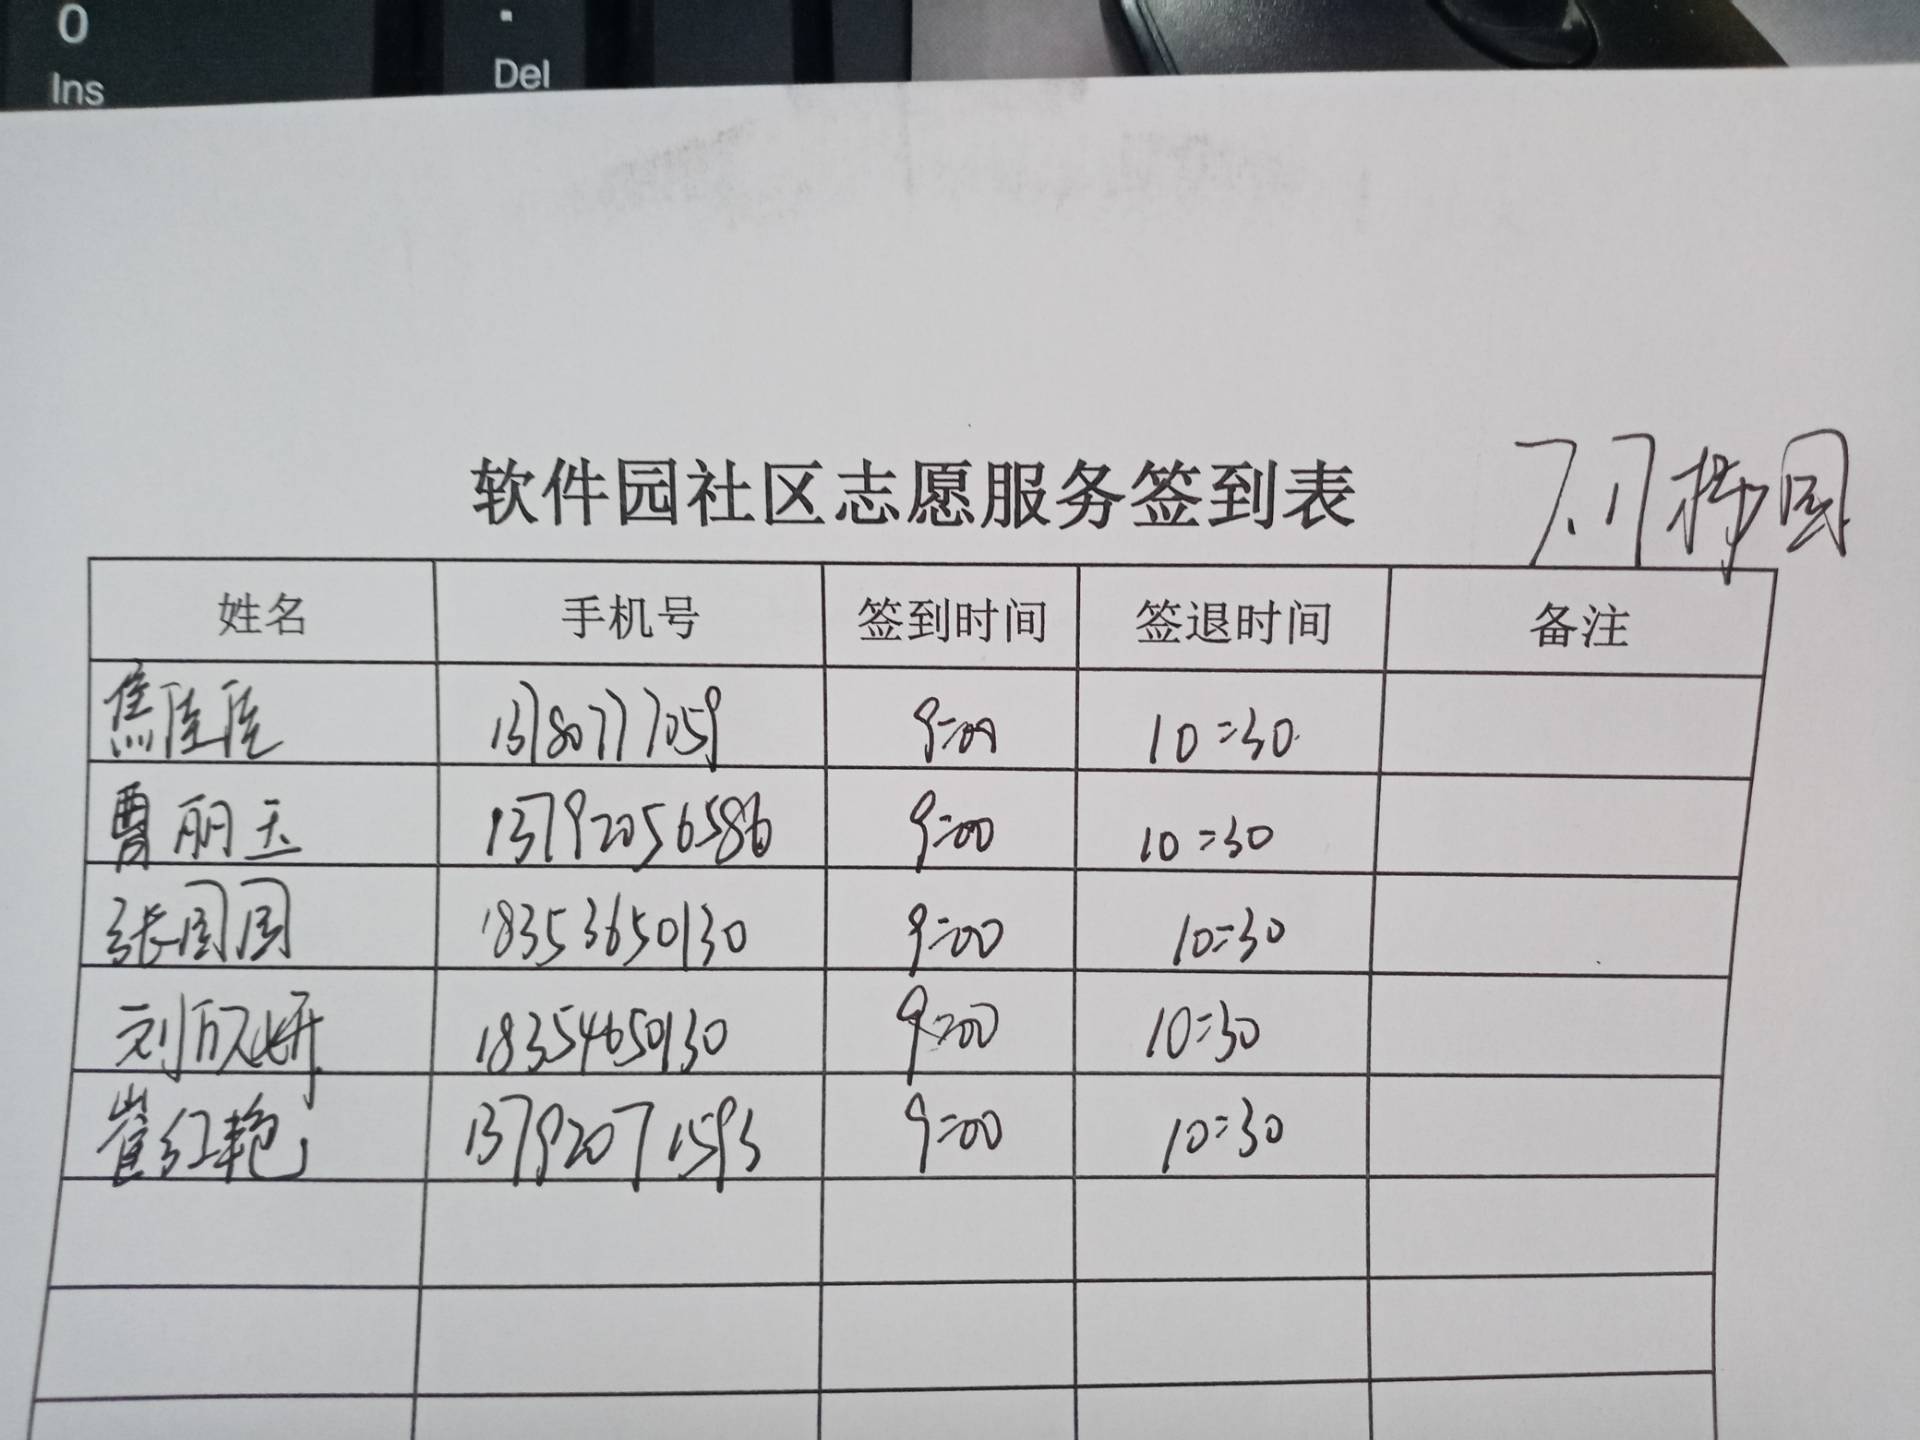 0
Ins
.
Del
软件园社区志愿服务签到表 7.17
姓名 手机号 签到时间 签退时间 备注
焦佳佳 13780777059 9:00 10:30
曹丽玉 13792056586 9:00 10:30
张圆圆 18353650130 9:00 10:30
刘欣妍 18354650130 9:00 10:30
崔红艳 13792071593 9:00 10:30